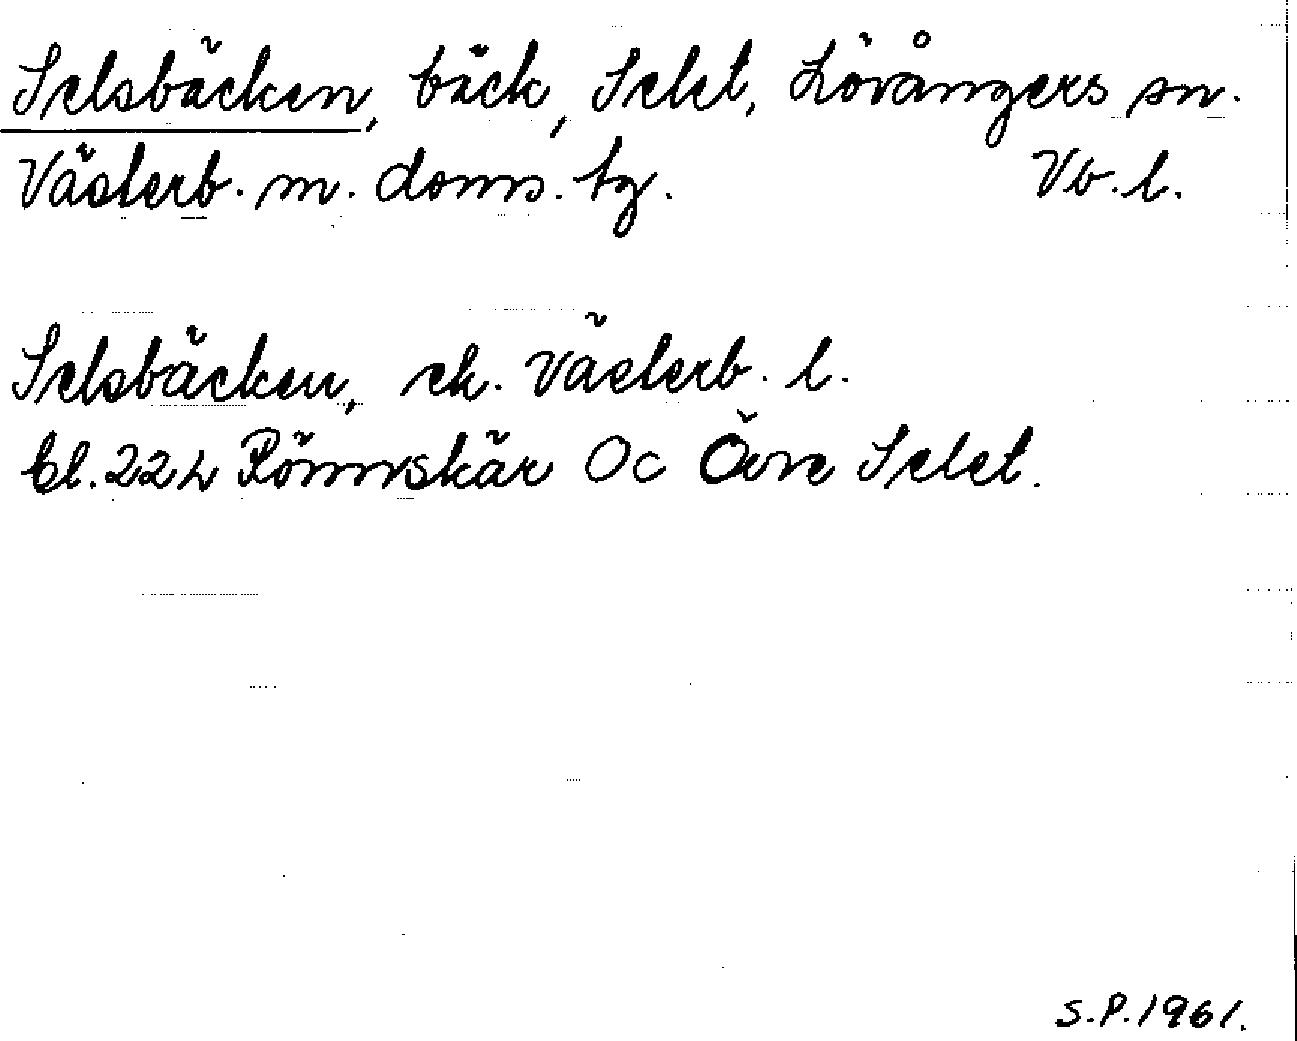 Selsbäcken, bäck, Selet, Lövångers sn.
Västerb. m. doms. tg. Vb. l.
Selsbäcken, ek. Västerb. l.
bl. 22 L Rönnskär Oc Övre Selet.
S.P. 1961.